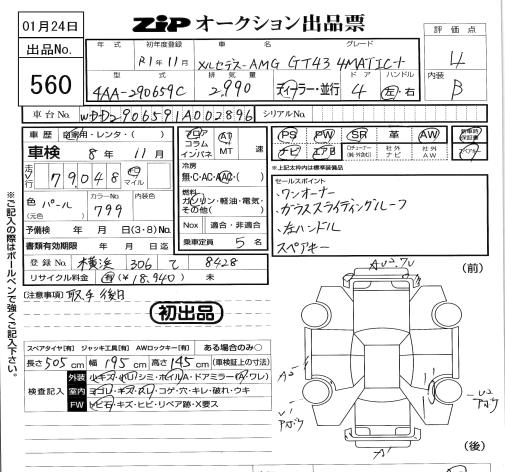 01月24日
出品No.
560
ZiP オークション出品票
評価点
4
内装
B
年式 初年度登録 車名 グレード
R1年11月 メルセデス-AMG GT43 4MATIC+
型式 排気量 ドア ハンドル
4AA-290659C 2,990 ディーラー・並行 4 左・右
車台No. WDD2906591A002896 シリアルNo.
車歴 自家用・レンタ・( )
車検 8年11月
走行 79048 km マイル
色 パール カラーNo. 799
(元色)
予備検 年 月 日(3・8)No.
書類有効期限 年 月 日迄
登録No. 横浜 306 て 8428
リサイクル料金 (¥18,940) 未
フロア コラム インパネ
AT MT 速
冷房
無・C・AC・AAC・( )
燃料
ガソリン・軽油・電気・その他( )
Nox 適合・非適合
乗車定員 5名
PS PW SR 革 AW
ナビ エアB 社外ナビ 社外AW
新車時保証書
※上記太枠内は標準装備品
セールスポイント
・ワンオーナー
・ガラススライディングルーフ
・左ハンドル
スペアキー
[注意事項] 取手後日
初出品
スペアタイヤ[有] ジャッキ工具[有] AWロックキー[有] ある場合のみ○
長さ505cm 幅195cm 高さ145cm (車検証上の寸法)
検査記入
外装 小キズ・ホリシミ・ホイルA・ドアミラー(A・ワレ)
室内 ヨゴレ・キズ・スリ・コゲ・穴・キレ・破れ・ウキ
FW トビ石・キズ・ヒビ・リペア跡・X要ス
※ご記入の際はボールペンで強くご記入下さい。
(前)
(後)
A1